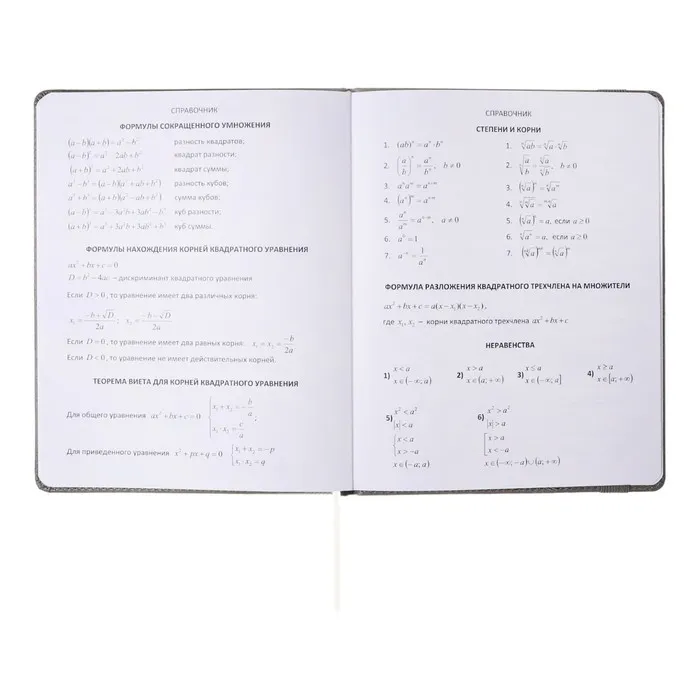 СПРАВОЧНИК
ФОРМУЛЫ СОКРАЩЕННОГО УМНОЖЕНИЯ
(a−b)(a+b)=a²−b² разность квадратов,
(a−b)²=a² 2ab+b² квадрат разности;
(a+b)²=a²+2ab+b² квадрат суммы;
a³−b³=(a−b)(a²+ab+b²) разность кубов;
a³+b³=(a+b)(a²−ab+b²) сумма кубов;
(a−b)³=a³−3a²b+3ab²−b³ куб разности;
(a+b)³=a³+3a²b+3ab²+b³ куб суммы.
ФОРМУЛЫ НАХОЖДЕНИЯ КОРНЕЙ КВАДРАТНОГО УРАВНЕНИЯ
ax²+bx+c=0
D=b²−4ac −дискриминант квадратного уравнения
Если D>0, то уравнение имеет два различных корня:
x₁=(−b+√D)/2a; x₂=(−b−√D)/2a
Если D=0, то уравнение имеет два равных корня x₁=x₂=−b/2a
Если D<0, то уравнение не имеет действительных корней.
ТЕОРЕМА ВИЕТА ДЛЯ КОРНЕЙ КВАДРАТНОГО УРАВНЕНИЯ
Для общего уравнения ax²+bx+c=0 {x₁+x₂=−b/a; x₁·x₂=c/a
Для приведенного уравнения x²+px+q=0 {x₁+x₂=−p x₁·x₂=q
СПРАВОЧНИК
СТЕПЕНИ И КОРНИ
1. (ab)ⁿ=aⁿ·bⁿ
2. (a/b)ⁿ=aⁿ/bⁿ, b≠0
3. aⁿaᵐ=aⁿ⁺ᵐ
4. (aⁿ)ᵐ=aⁿᵐ
5. aⁿ/aᵐ=aⁿ⁻ᵐ, a≠0
6. a⁰=1
7. a⁻ⁿ=1/aⁿ
1. ⁿ√ab=ⁿ√a·ⁿ√b
2. ⁿ√(a/b)=ⁿ√a/ⁿ√b, b≠0
3. (ⁿ√a)ᵐ=ⁿ√aᵐ
4. ᵐ√ⁿ√a=ᵐⁿ√a
5. =a, если a≥0
6. =a, если a≥0
7.
ФОРМУЛА РАЗЛОЖЕНИЯ КВАДРАТНОГО ТРЕХЧЛЕНА НА МНОЖИТЕЛИ
ax²+bx+c=a(x−x₁)(x−x₂),
где x₁, x₂ − корни квадратного трехчлена ax²+bx+c
НЕРАВЕНСТВА
1) x<a x∈(−∞;a)
2) x>a x∈(a;+∞)
3) x≤a x∈(−∞;a]
4) x≥a x∈[a;+∞)
5) x²<a² |x|<a {x<a x>−a x∈(−a;a)
6) x²>a² |x|>a [x>a x<−a x∈(−∞;−a)∪(a;+∞)